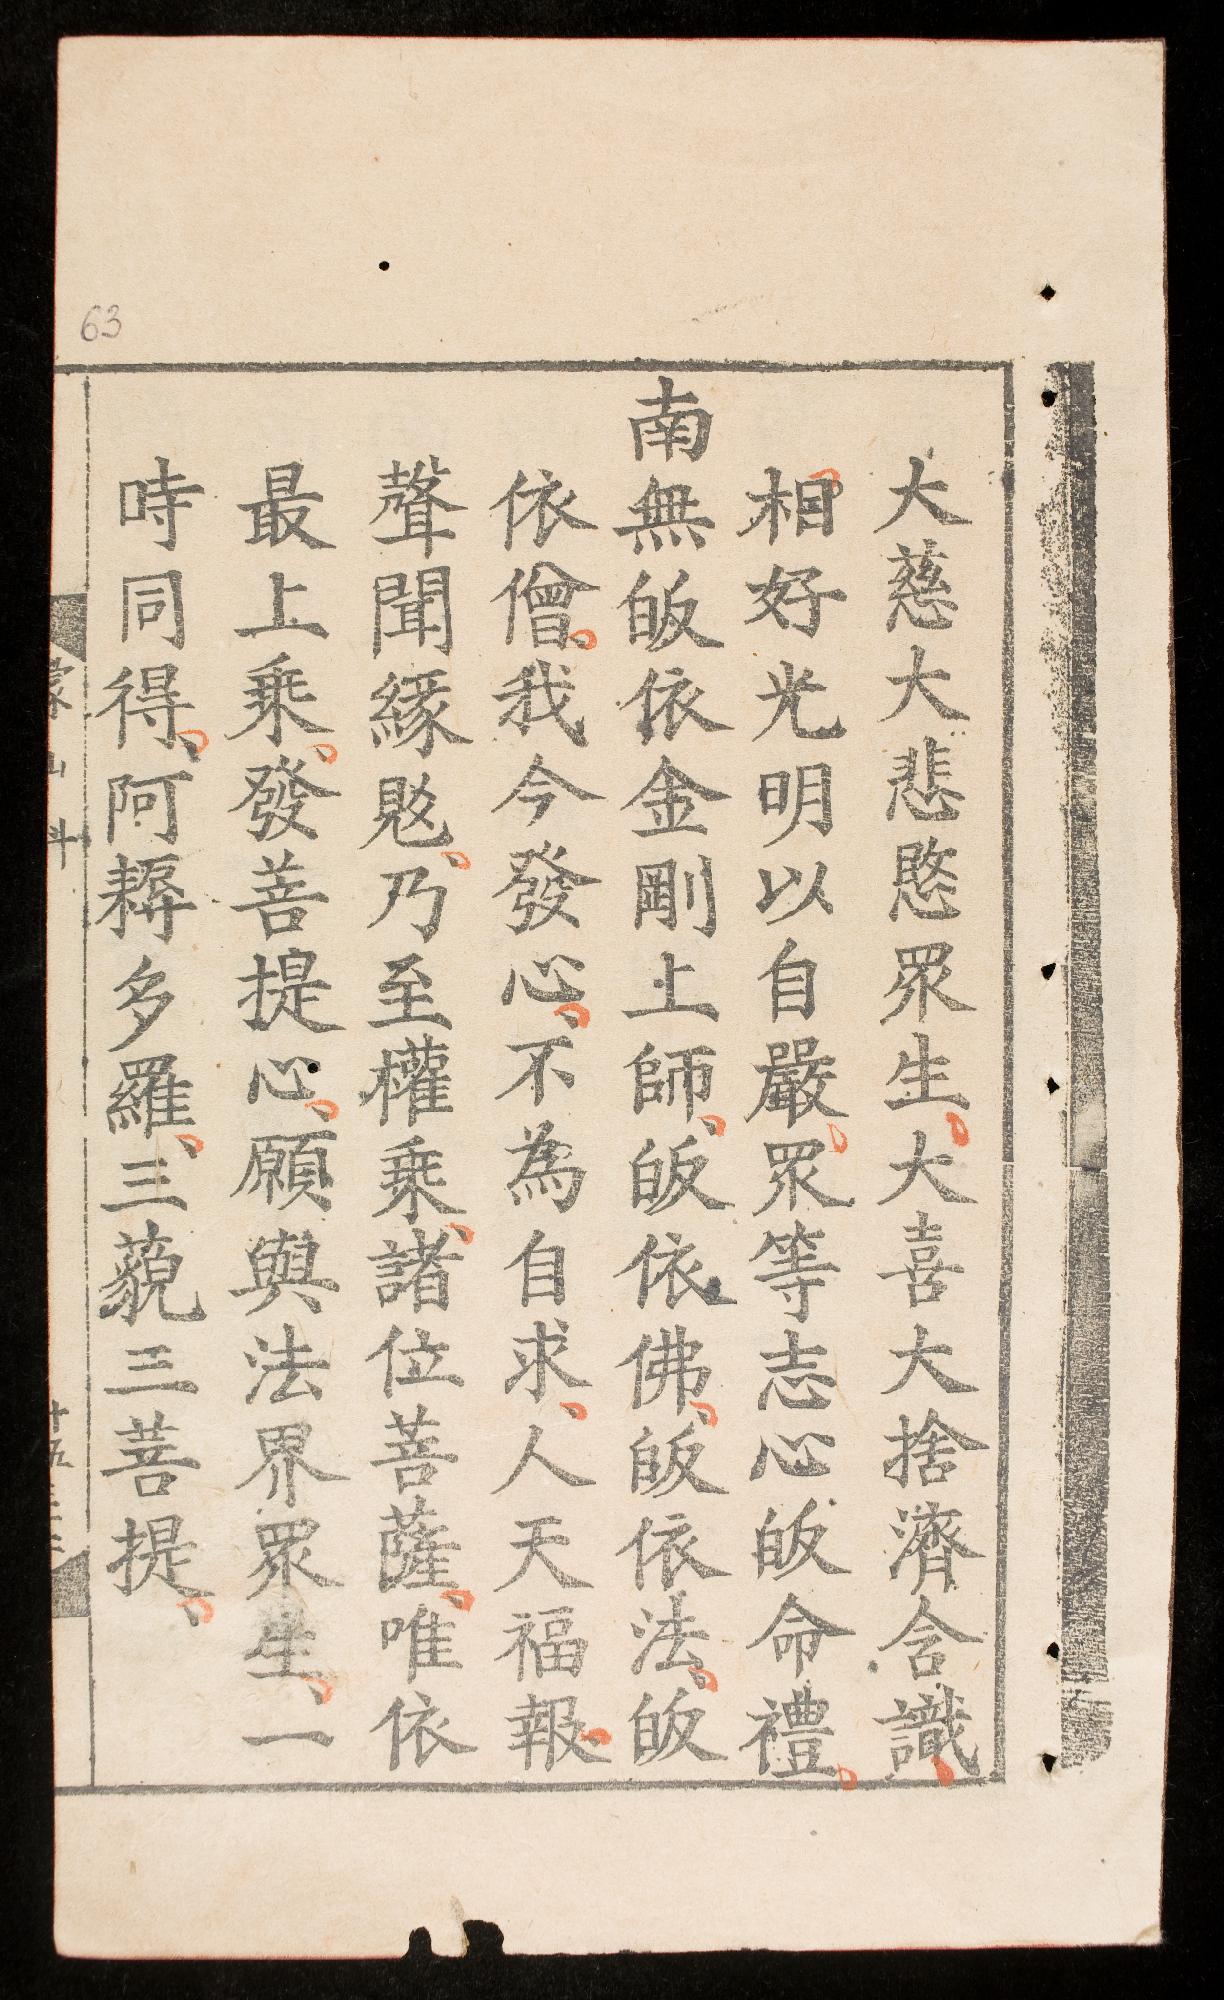 大慈大悲愍眾生、大喜大捨濟含識、
相好光明以自嚴眾等志心皈命禮
南無皈依金剛上師、皈依佛、皈依法、皈
依僧、我今發心、不為自求、人天福報、
聲聞緣覓、乃至權乘、諸位菩薩、唯依
最上乘、發菩提心、願與法界眾生、一
時同得、阿耨多羅、三藐三菩提、
蒙山科
63